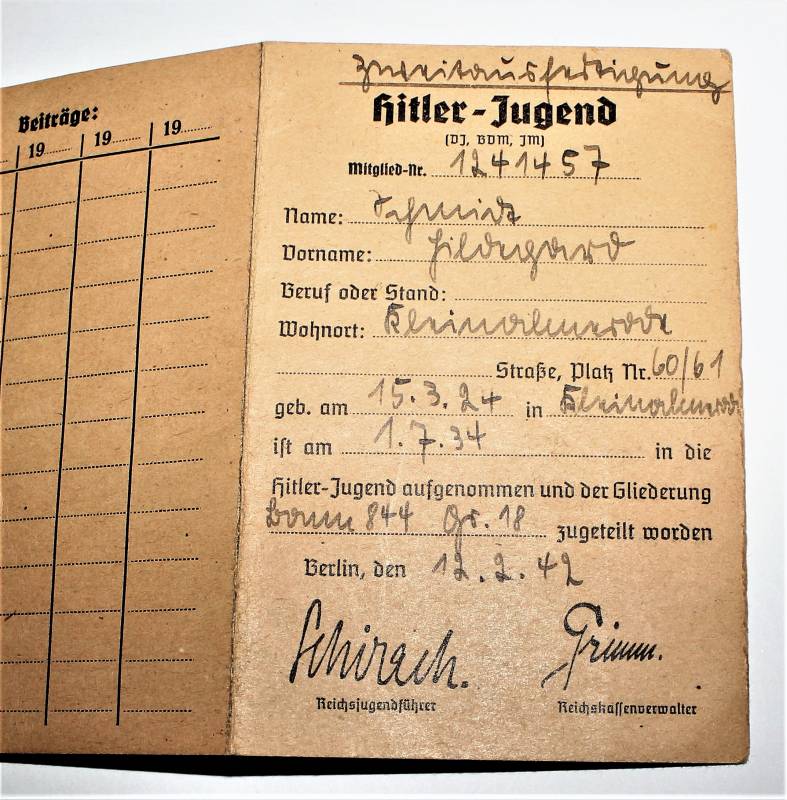 Beiträge:
19...... 19...... 19......
Zweitausfertigung
Hitler-Jugend
(DJ, BDM, JM)
Mitglied-Nr. 1241457
Name: Schmidt
Vorname: Hildegard
Beruf oder Stand:
Wohnort: Kleinalmerode
Straße, Platz Nr. 60/61
geb. am 15.3.24 in Kleinalmerode
ist am 1.7.34 in die
Hitler-Jugend aufgenommen und der Gliederung
Bann 844 Gr. 18 zugeteilt worden
Berlin, den 12.2.42
Schirach. Grimm.
Reichsjugendführer Reichskassenverwalter